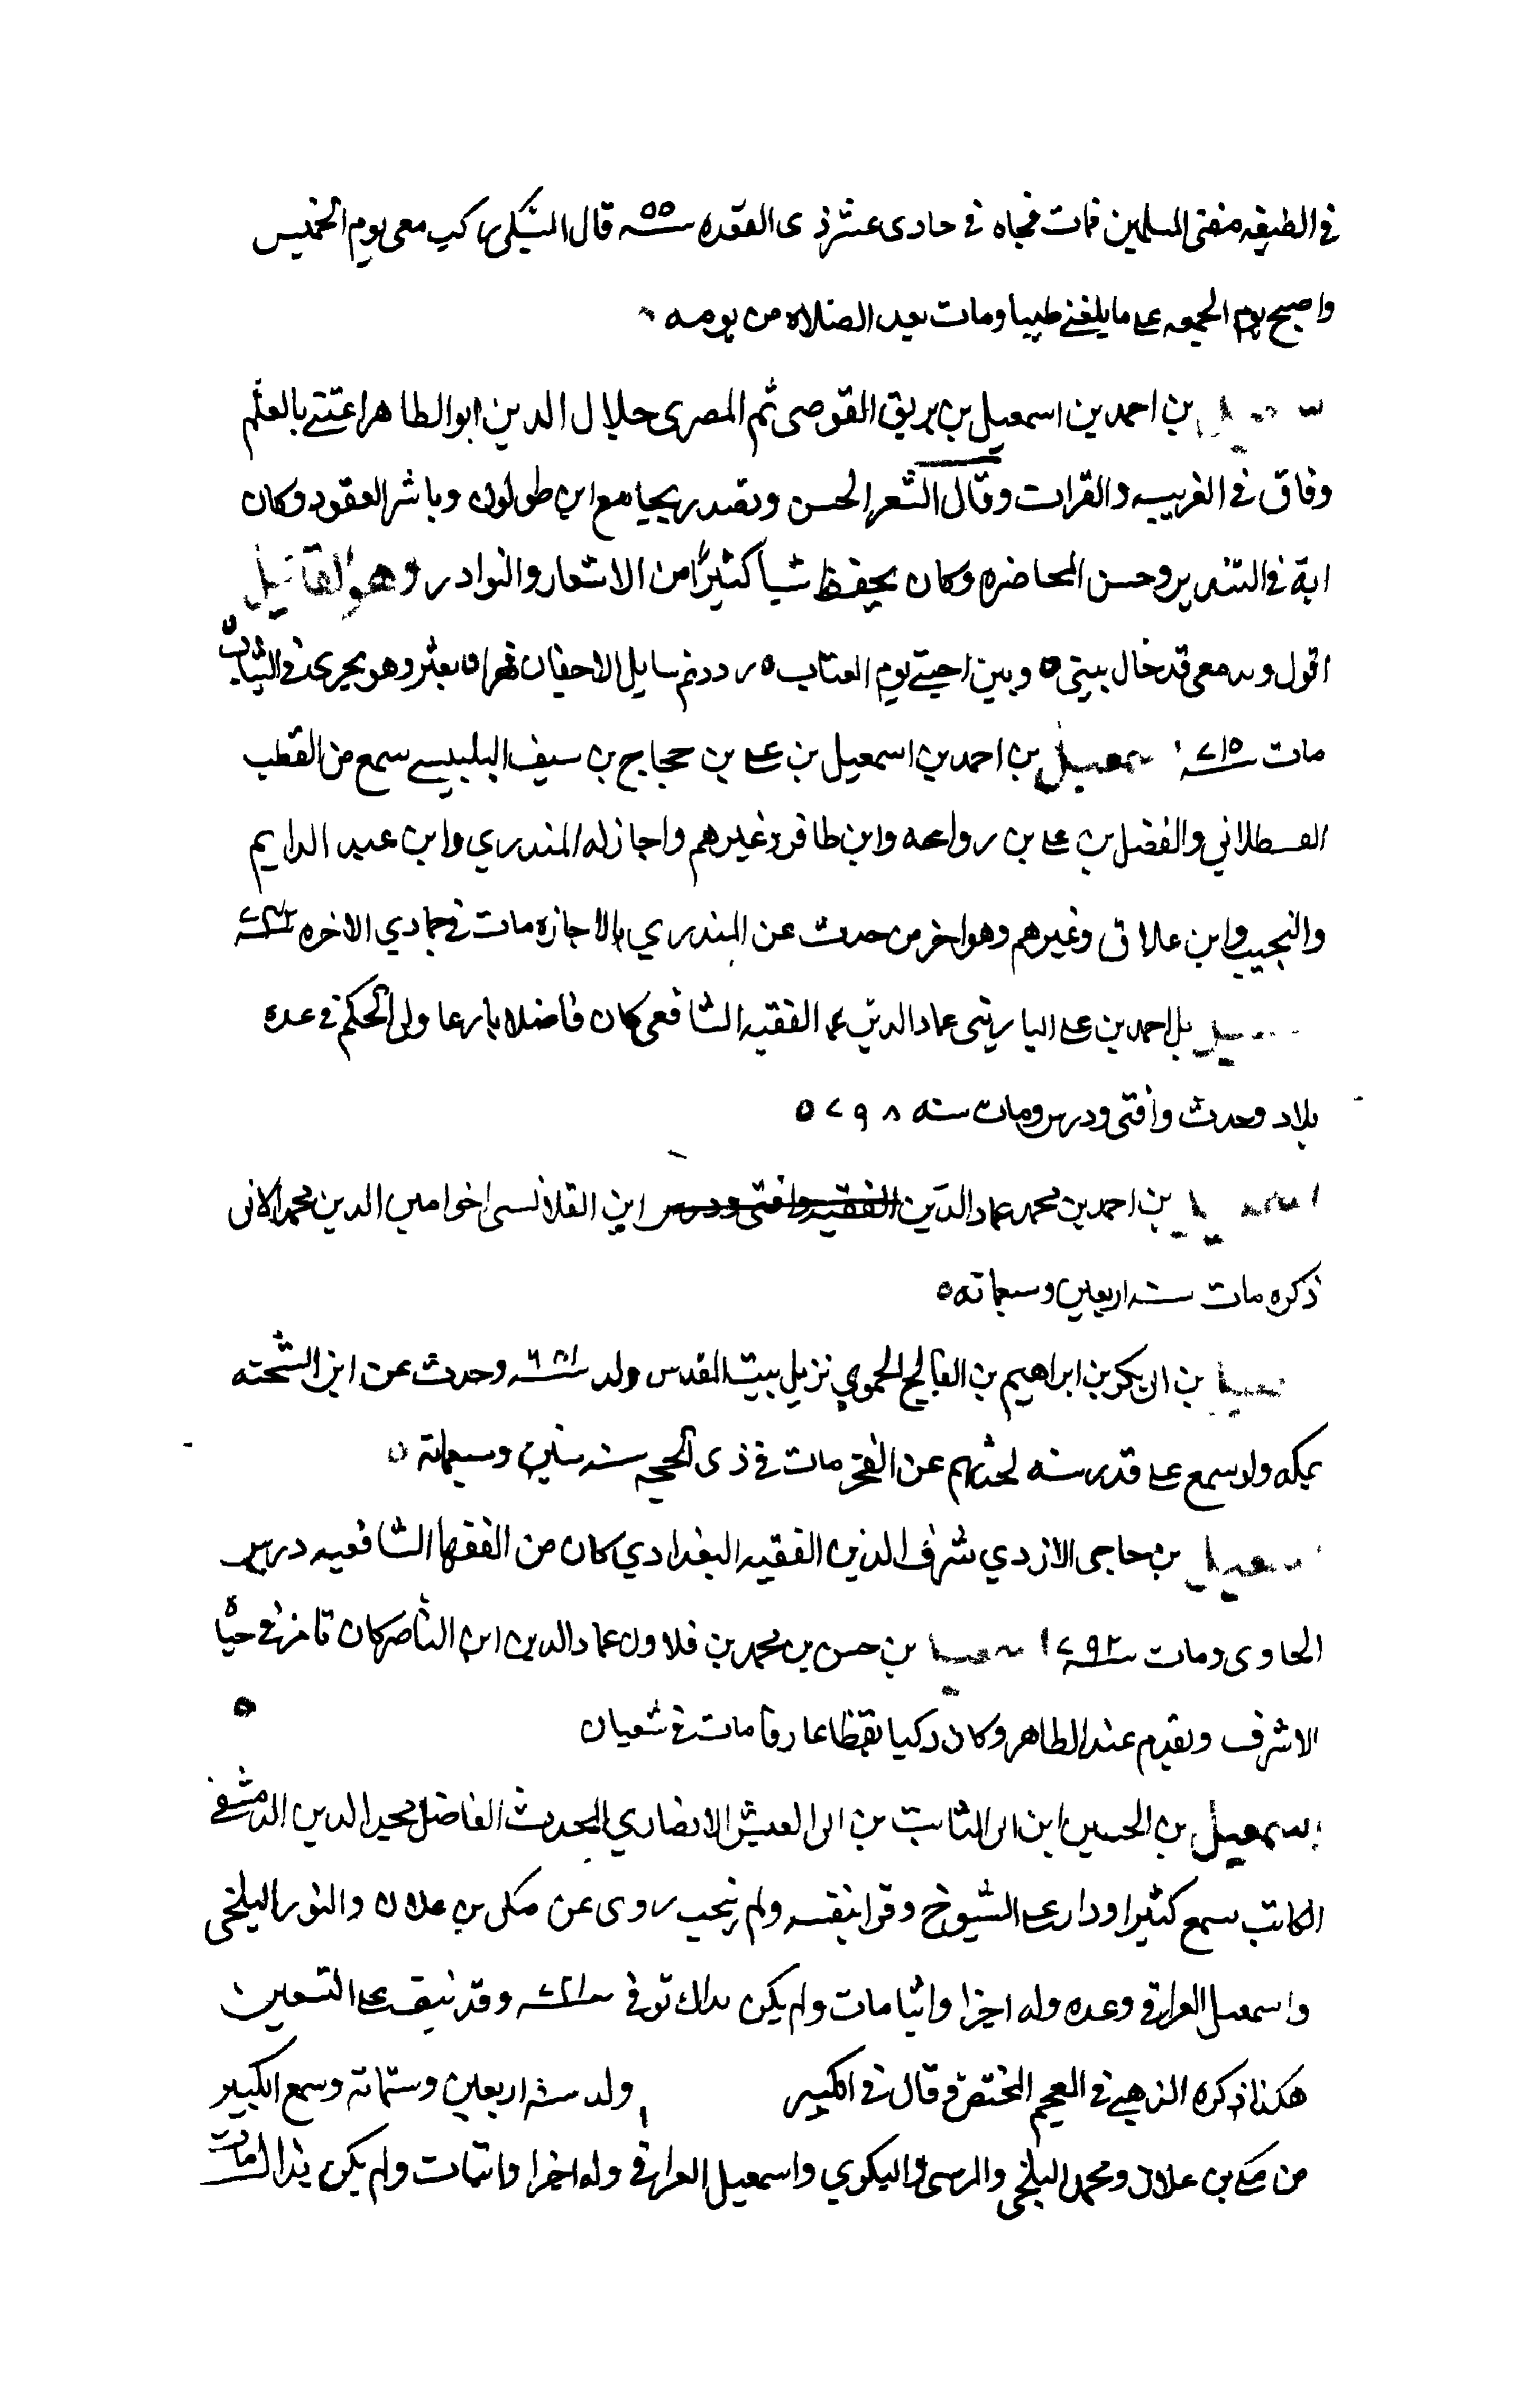 في الطيبه مفتي المسلمين فمات فجاه في حادى عشر ذى القعده سنة ٥٥ قال السبكى ركب معى يوم الخميس
واصبح يوم الجمعه على ما بلغني طيبا ومات بعد الصلاه من يومه
بن احمد بن اسمعيل بن بريق القوصى ثم المصرى جلال الدين ابو الطاهر اعتنى بالعلم
وفاق في العربيه والقرات وقال الشعر الحسن وتصدر بجامع ابن طولون وباشر العقود وكان
اية في التندير وحسن المحاضره وكان يحفظ شيأ كثيرا من الاشعار والنوادر وهو القائيل
اقول ودمعى قد حال بينى ٥ وبين احبتي يوم العتاب ٥ رددتم سايل الاجفان نهرا ٥ يعثر وهو يجرى في الثياب
مات سنة ٧١٥ سمعيل بن احمد بن اسمعيل بن على بن حجاج بن سيف البلبيسي سمع من القطب
القسطلاني والفضل بن على بن رواحه وابن ظافر وغيرهم واجاز له المنذري وابن عبد الدايم
والنجيب وابن علاق وغيرهم وهو اخر من حدث عن المنذري بالاجازه مات في جمادي الاخره
بن احمد بن على عماد الدين الفقيه الشافعى كان فاضلا بارعا ولى الحكم في عده
بلاد وحدث وافتى ودرس ومات سنه ٧٩٨ ٥
اسمعيل بن احمد بن محمد عماد الدين الفقيه وافتى ودرس ابن القلانسى اخو امين الدين محمد الاتى
ذكره مات سنة اربعين وسبعماته ٥
بن ابى بكر بن ابراهيم بن الحموي نزيل بيت المقدس ولد وحدث عن ابن الشحنه
بمكه ولو سمع على قدر سنه لحدثهم عن الفخر مات في ذى الحجه سنة ستين وسبعماته ٥
سمعيل بن حاجى الازدي شرف الدين الفقيه البغدادي كان من الفقها الشافعيه درس
الحاوى ومات سنة ٧٩٢ اسمعيل بن حسن بن محمد بن قلاون عماد الدين ابن الناصر كان تامر في حياة
الاشرف وتقدم عند الظاهر وكان ذكيا يقظا عارفا مات في شعبان
اسمعيل بن الحسين ابن ابى الثابت بن ابى العيش الانصاري المحدث الفاضل مجير الدين الدمشقى
الكاتب سمع كثيرا ودار على الشيوخ وقرا بنفسه ولم ينجب روى عن مكى بن علان والنور البلخى
واسمعيل العراقى وعده وله اجزا واثبامات ولم يكن بذاك توفى وقد نيف على التسعين
هكذا ذكره الذهبي في المعجم المختص وقال في الكبير ولد سنة اربعين وستماته وسمع الكبير
من مكي بن علان ومحمد البلخى والمرسى والبكري واسمعيل العراقى وله اجزا واثبات ولم يكن بذاك مات